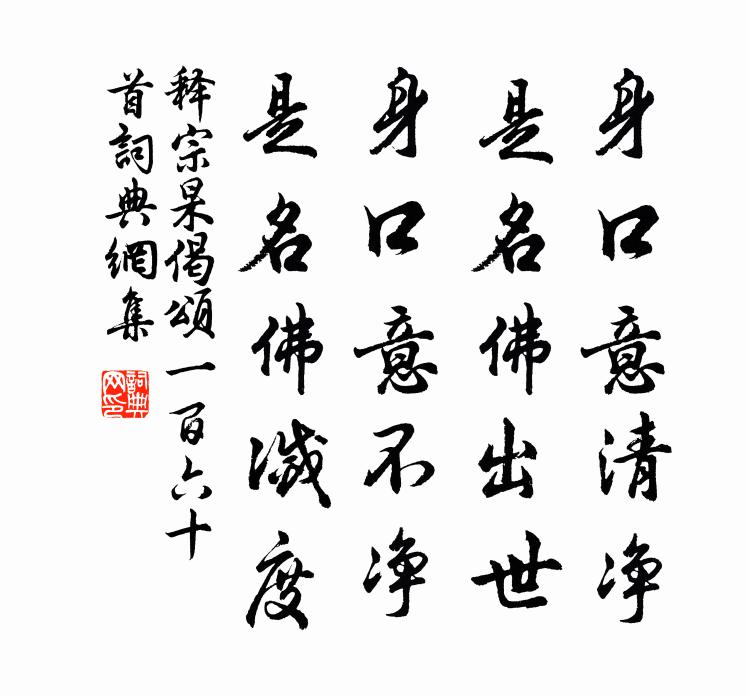 身口意清净
是名佛出世
身口意不净
是名佛滅度
释宗杲偈頌一百六十
首詞典網集
詞典
网印